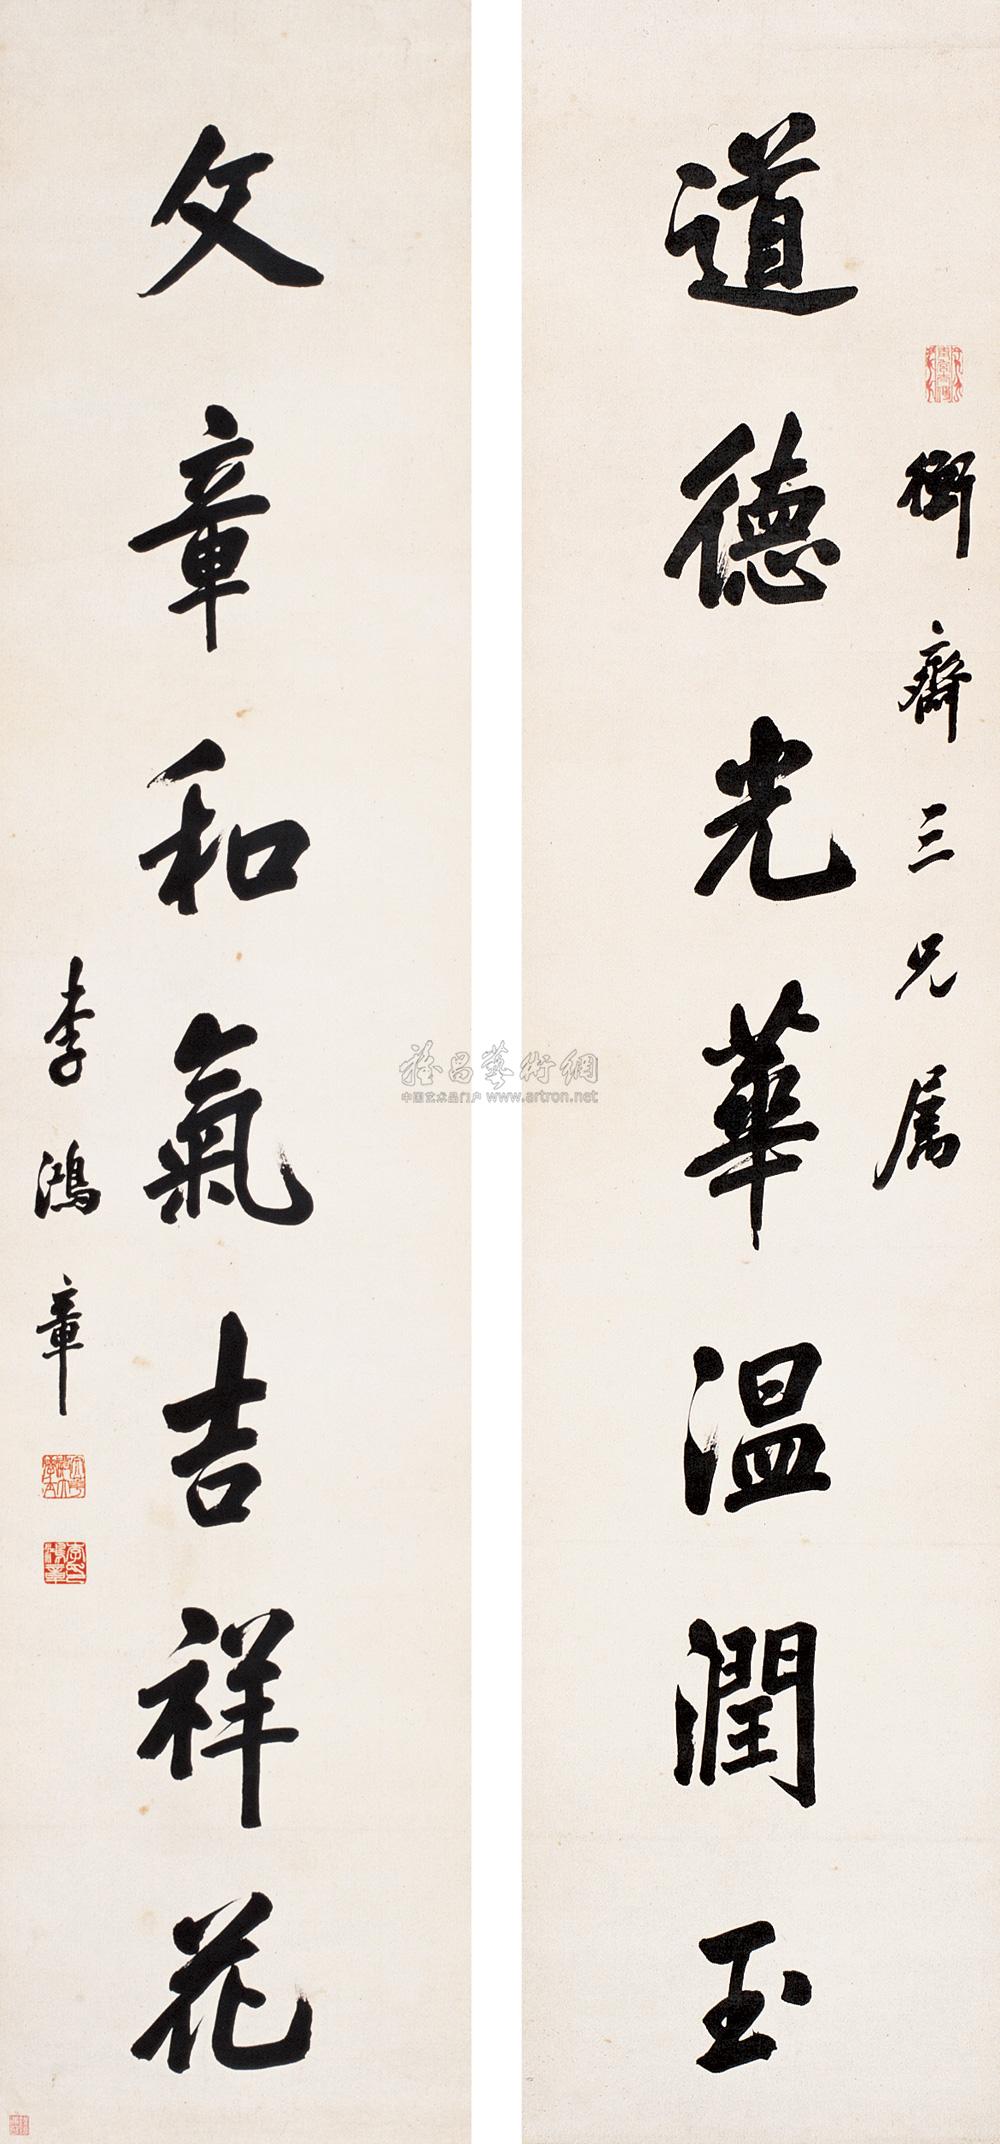 衡齋三兄属
道德光華温潤玉
文章和氣吉祥花
李鴻章
雅昌藝術網
中国艺术品门户 www.artron.net